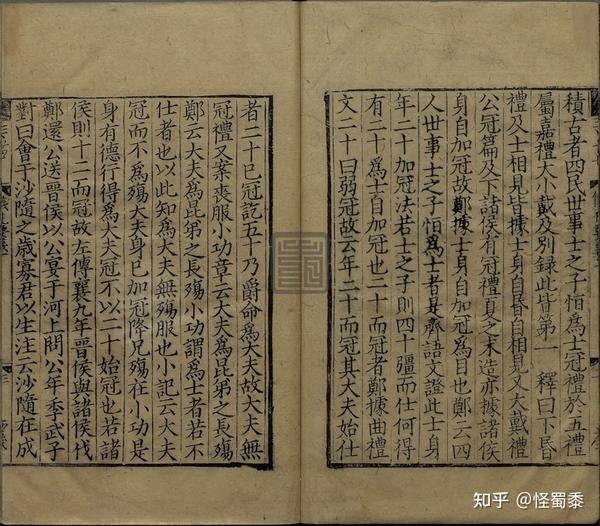 積古者四民世事士之子恒爲士冠禮於五禮
屬嘉禮大小戴及別録此皆第一 釋曰下昏
禮及士相見皆據士身自昏自相見又大戴禮
公冠篇及下諸侯有冠禮夏之末造亦據諸侯
身自加冠故鄭據士身自加冠爲目也鄭云四
人世事士之子恒爲士者是齊語文證此士身
年二十加冠法若士之子則四十彊而仕何得
有二十爲士自加冠也二十而冠者鄭據曲禮
文二十曰弱冠故云年二十而冠其大夫始仕
者二十已冠訖五十乃爵命爲大夫故大夫無
冠禮又案喪服小功章云大夫爲昆弟之長殤
鄭云大夫爲昆弟之長殤小功謂爲士者若不
仕者也以此知爲大夫無殤服也小記云大夫
冠而不爲殤大夫身已加冠降兄殤在小功是
身有德行得爲大夫冠不以二十始冠也若諸
侯則十二而冠故左傳襄九年晉侯與諸侯伐
鄭還公送晉侯以公宴于河上問公年季武子
對曰會于沙隨之歲寡君以生注云沙隨在成
知乎 @怪蜀黍